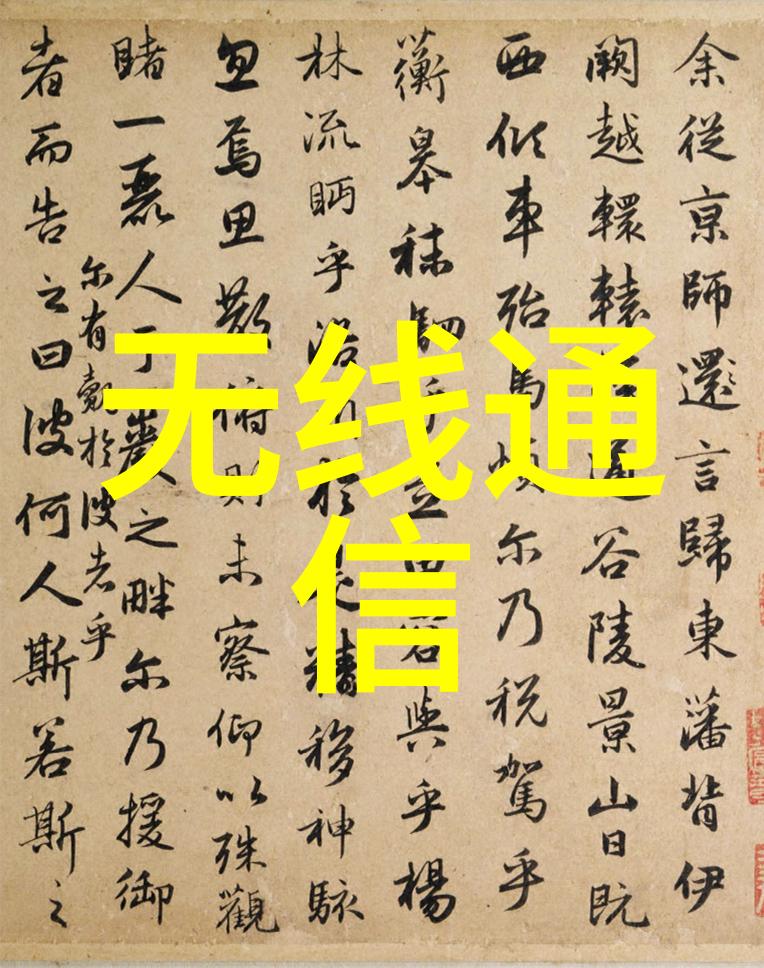 余從京師還言歸東藩背伊
闕越轘轅通谷陵景山日既
西傾車殆馬煩尔乃税駕乎
蘅皋秣駟乎田容與乎楊
林流眄乎洛川於是精移神駭
忽焉思散俯則未察仰以殊觀
睹一麗人于巖之畔尔乃援御
尔有覿於彼者乎
者而告之曰彼何人斯若斯之
无线通
信